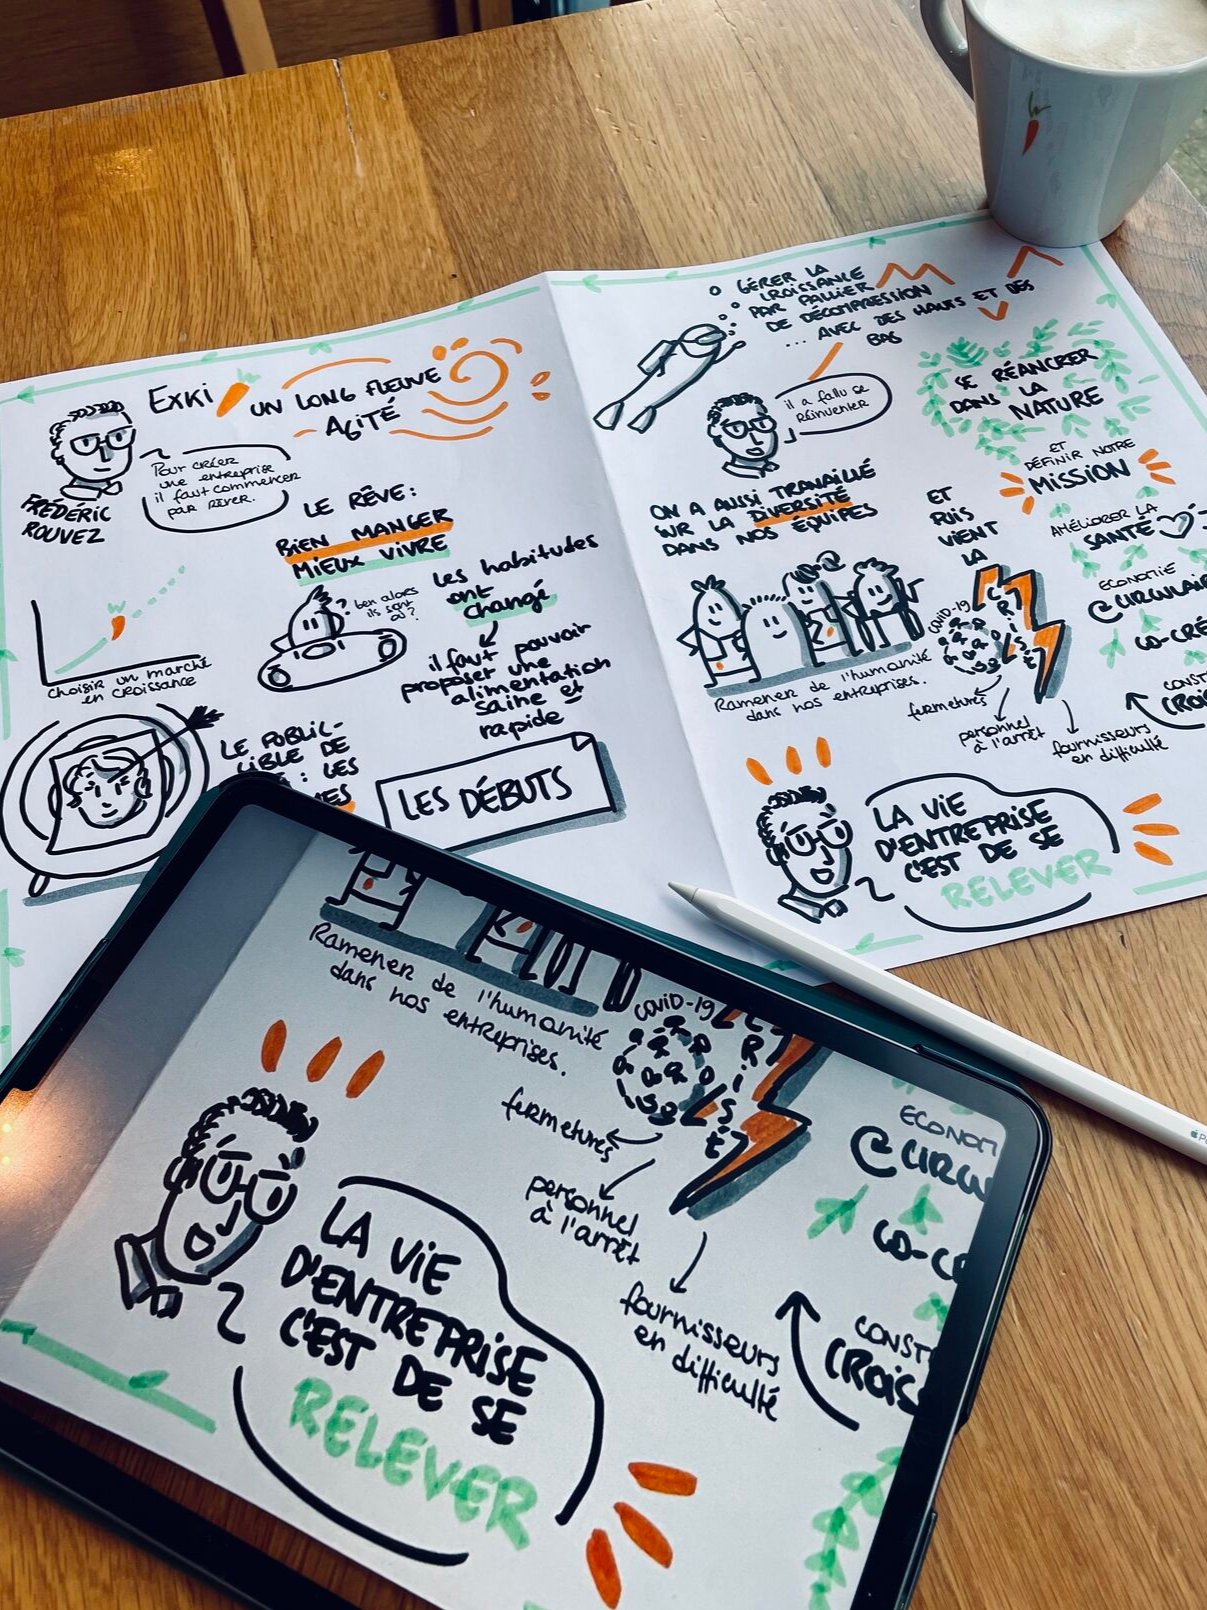 EXKI
UN LONG FLEUVE
AGITÉ
FRÉDÉRIC
ROUVEZ
Pour créer
une entreprise
il faut commencer
par rêver.
LE RÊVE:
BIEN MANGER
MIEUX VIVRE
ben alors
ils sont
où ?
Les habitudes
ont
changé
il faut pouvoir
proposer une
alimentation
saine et
rapide
choisir un marché
en croissance
LE PUBLIC-
CIBLE DE
: LES
LES DÉBUTS
GÉRER LA
CROISSANCE
PAR PALLIER
DE DÉCOMPRESSION
... AVEC DES HAUTS ET DES
BAS
il a fallu se
Réinventer
SE RÉANCRER
DANS LA
NATURE
ET
DÉFINIR NOTRE
MISSION
AMÉLIORER LA
SANTÉ
ECONOMIE
CIRCULAI
CO-CRÉ
CONST
CROI
ON A AUSSI TRAVAILLÉ
SUR LA DIVERSITÉ
DANS NOS ÉQUIPES
Ramener de l'humanité
dans nos entreprises.
ET
PUIS
VIENT
LA
CRISE
COVID-19
fermetures
personnel
à l'arrêt
fournisseurs
en difficulté
LA VIE
D'ENTREPRISE
C'EST DE SE
RELEVER
Ramener de l'humanité
dans nos entreprises.
COVID-19
CRISE
fermetures
personnel
à l'arrêt
fournisseurs
en difficulté
ECONOM
CIRCU
CO-C
CONST
CROIS
LA VIE
D'ENTREPRISE
C'EST DE SE
RELEVER